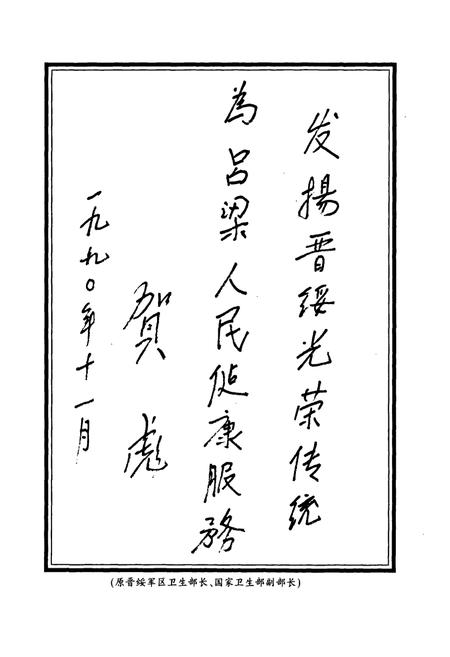 发揚晋绥光荣传统
為吕梁人民健康服務
贺彪
一九九〇年十一月
(原晋绥军区卫生部长、国家卫生部副部长)